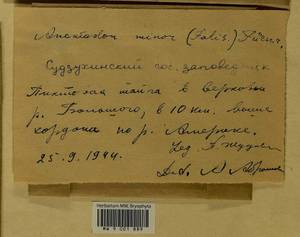 Anomodon minor (Palis.) Fürnr.
Судзухинский гос. заповедник
Пихтовая тайга в верховьи
р. Большого, в 10 км. выше
кордона по р. Америке.
Leg.
25.9.1944.
Det. А Абрамова
Herbarium MW, Bryophyta
MW 9 001 889